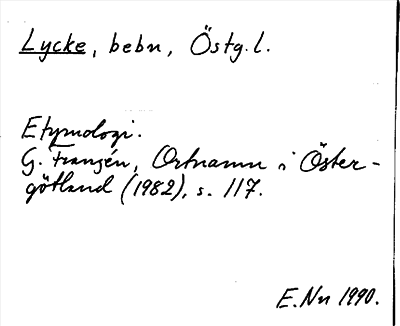 Lycke, bebn, Östg. l.
Etymologi.
G. Franzén, Ortnamn i Öster-
götland (1982), s. 117.
E. Nn 1990.